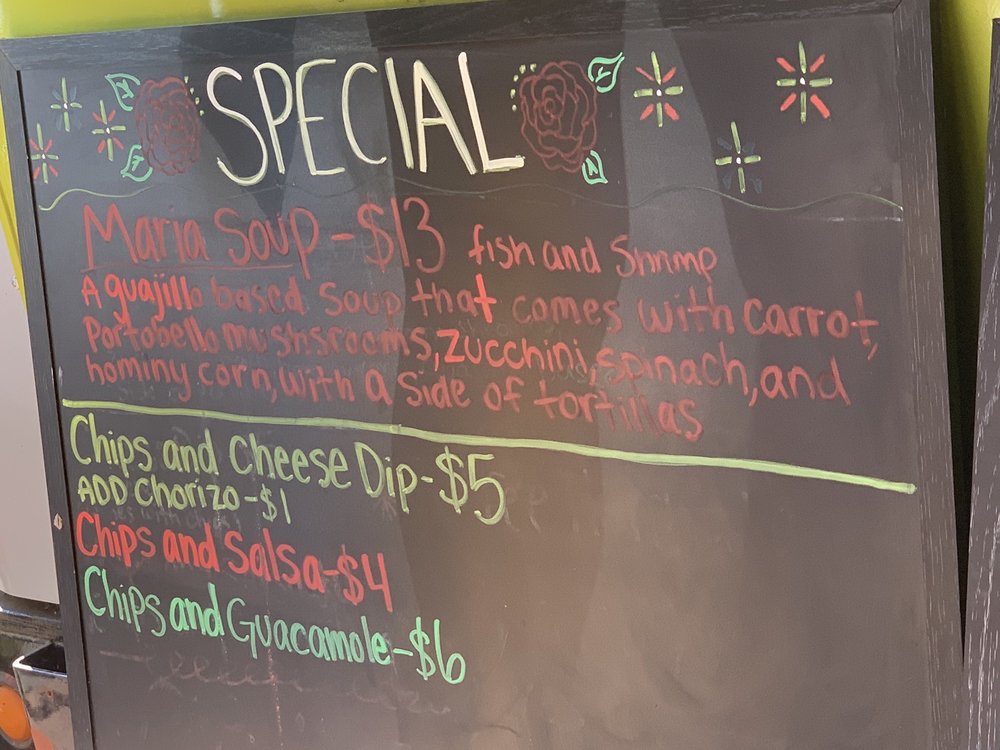 SPECIAL
Maria Soup - $13 fish and Shrimp
A guajillo based Soup that comes with carrot,
Portobello mushsrooms, zucchini, spinach, and
hominy corn, with a side of tortillas
Chips and Cheese Dip - $5
ADD Chorizo - $1
Chips and Salsa - $4
Chips and Guacamole - $6